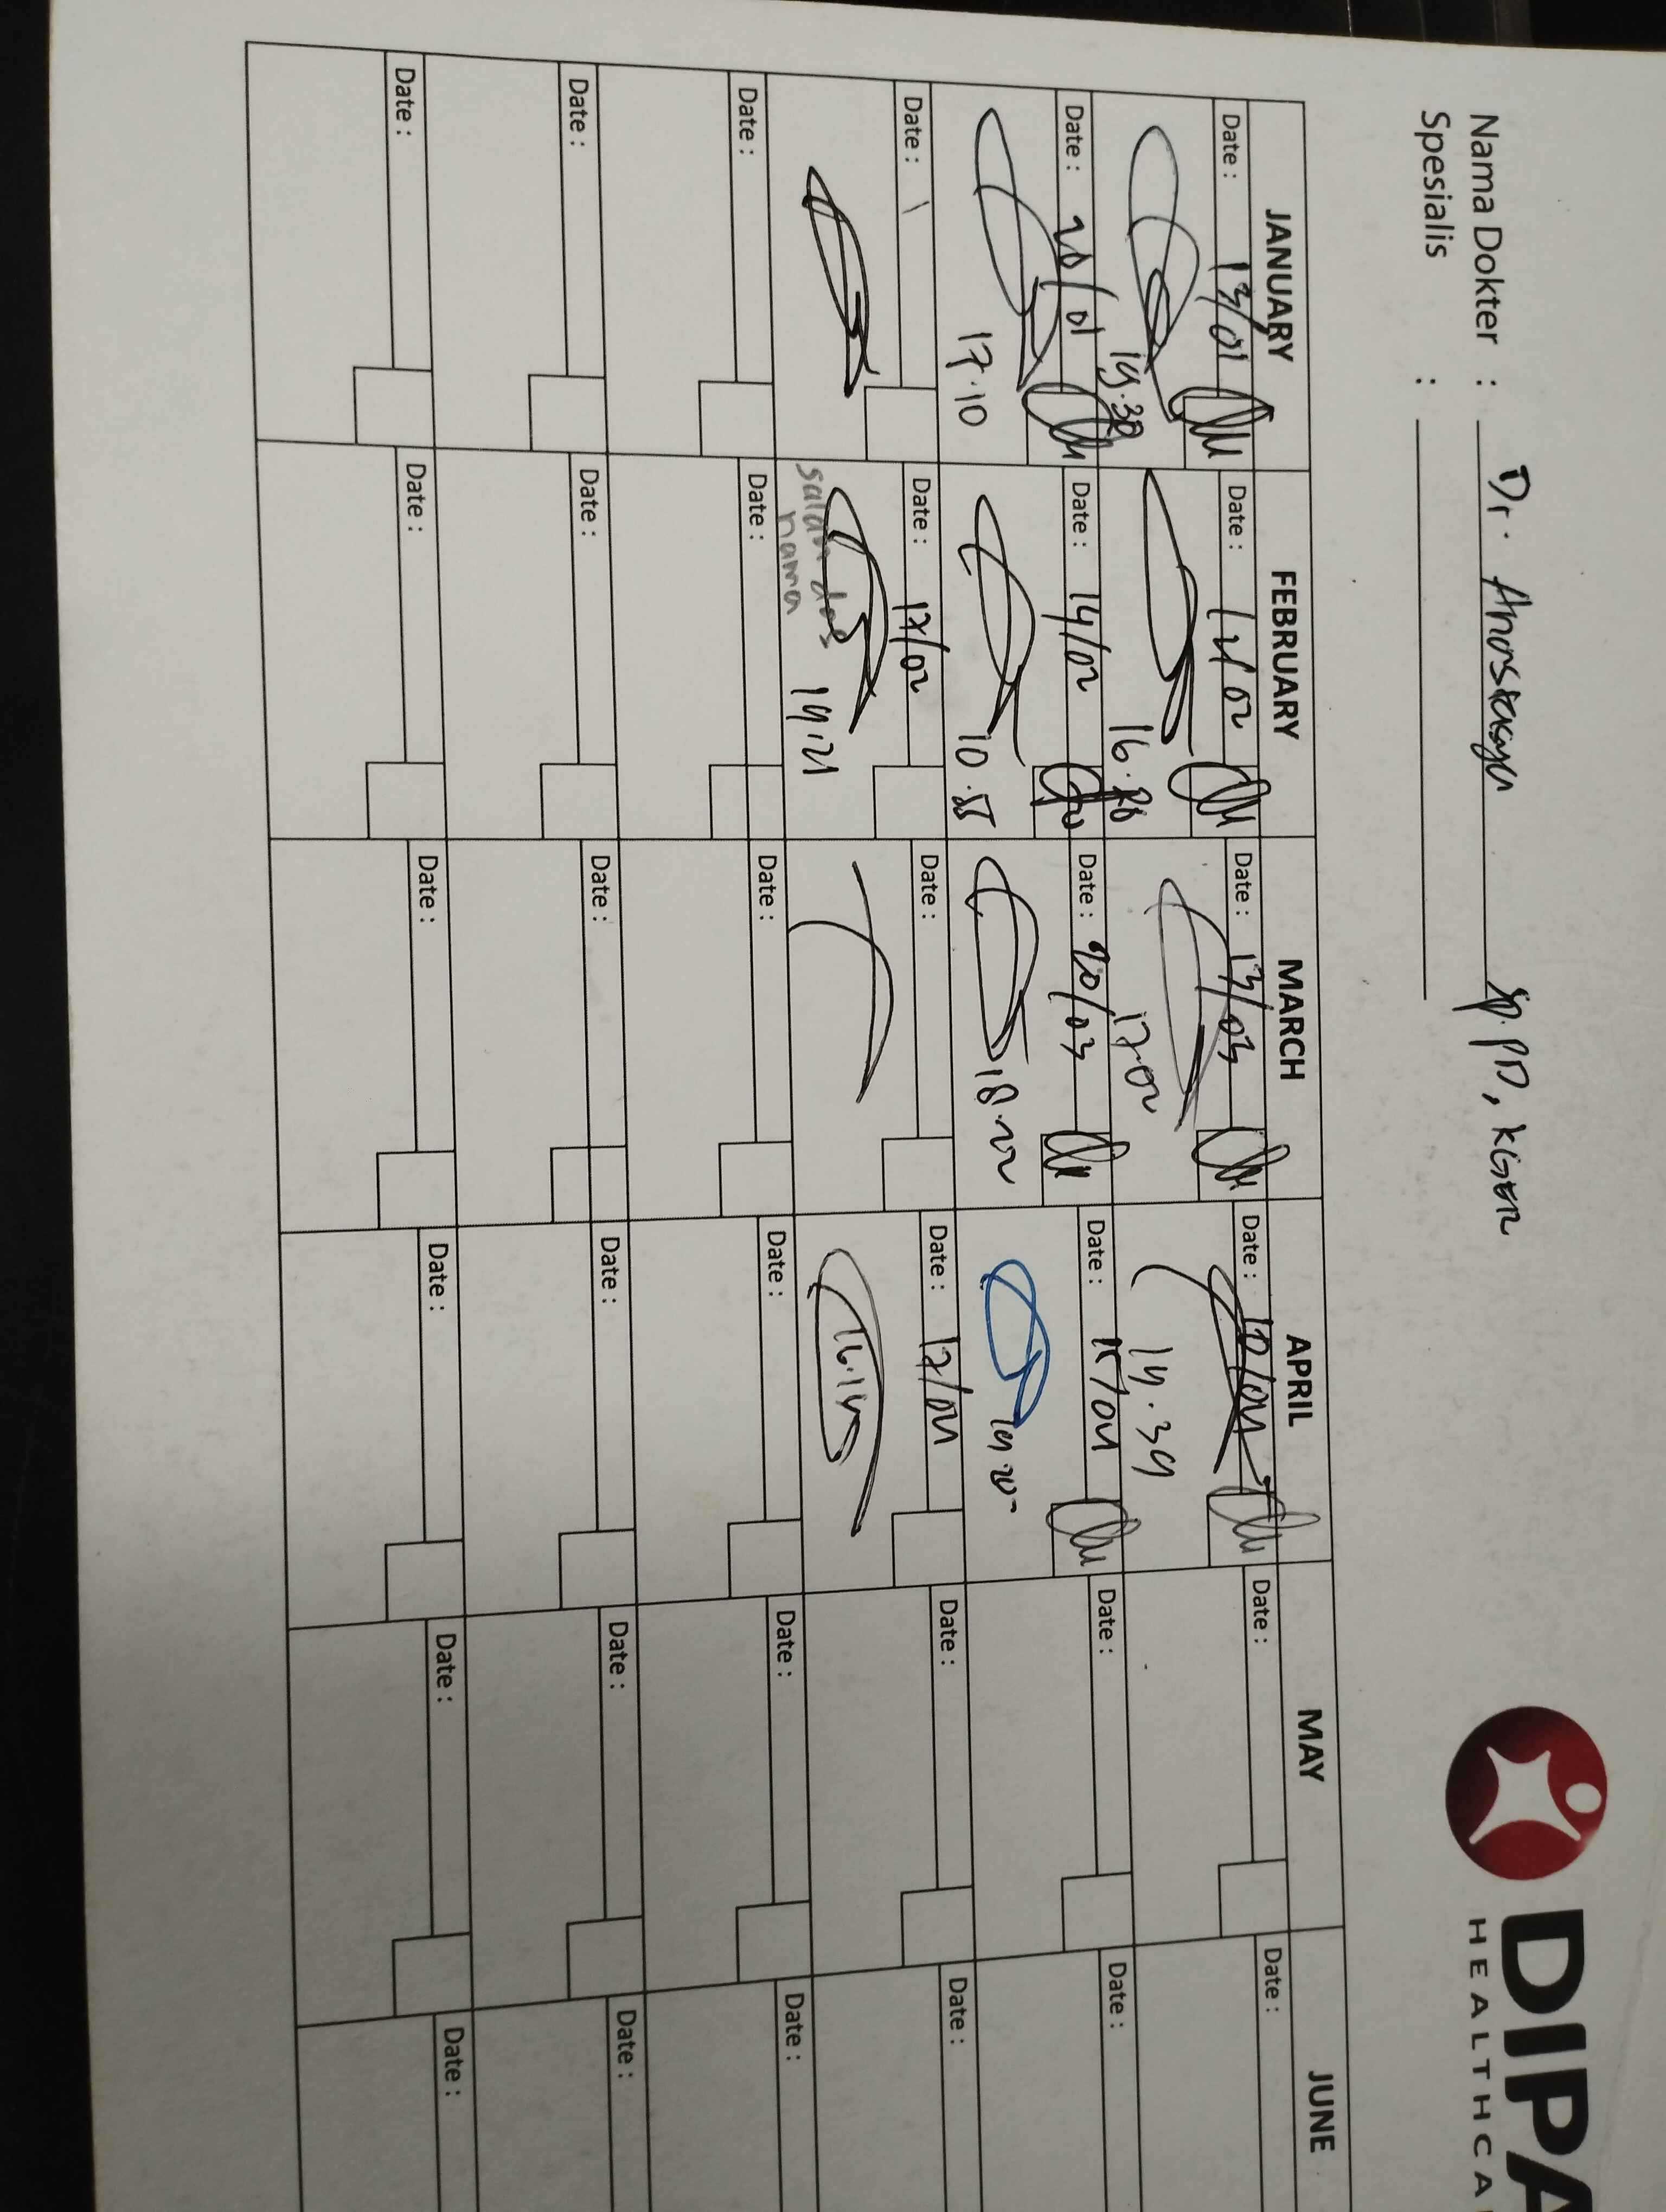 DIPA
HEALTHCA
Nama Dokter : Dr. Anastasya Sp.PD, KGER
Spesialis :
JANUARY FEBRUARY MARCH APRIL MAY JUNE
Date : 13/01 Date : 12/02 Date : 13/03 Date : 10/04 Date : Date :
19.30 16.28 17.02 14.39
Date : 20/01 Date : 14/02 Date : 20/03 Date : 15/04 Date : Date :
17.10 10.55 18.22
Date : Date : 17/02 Date : Date : 17/04 Date : Date :
19.21 16.14
salah dos
nama
Date : Date : Date : Date : Date : Date :
Date : Date : Date : Date : Date : Date :
Date : Date : Date : Date : Date : Date :